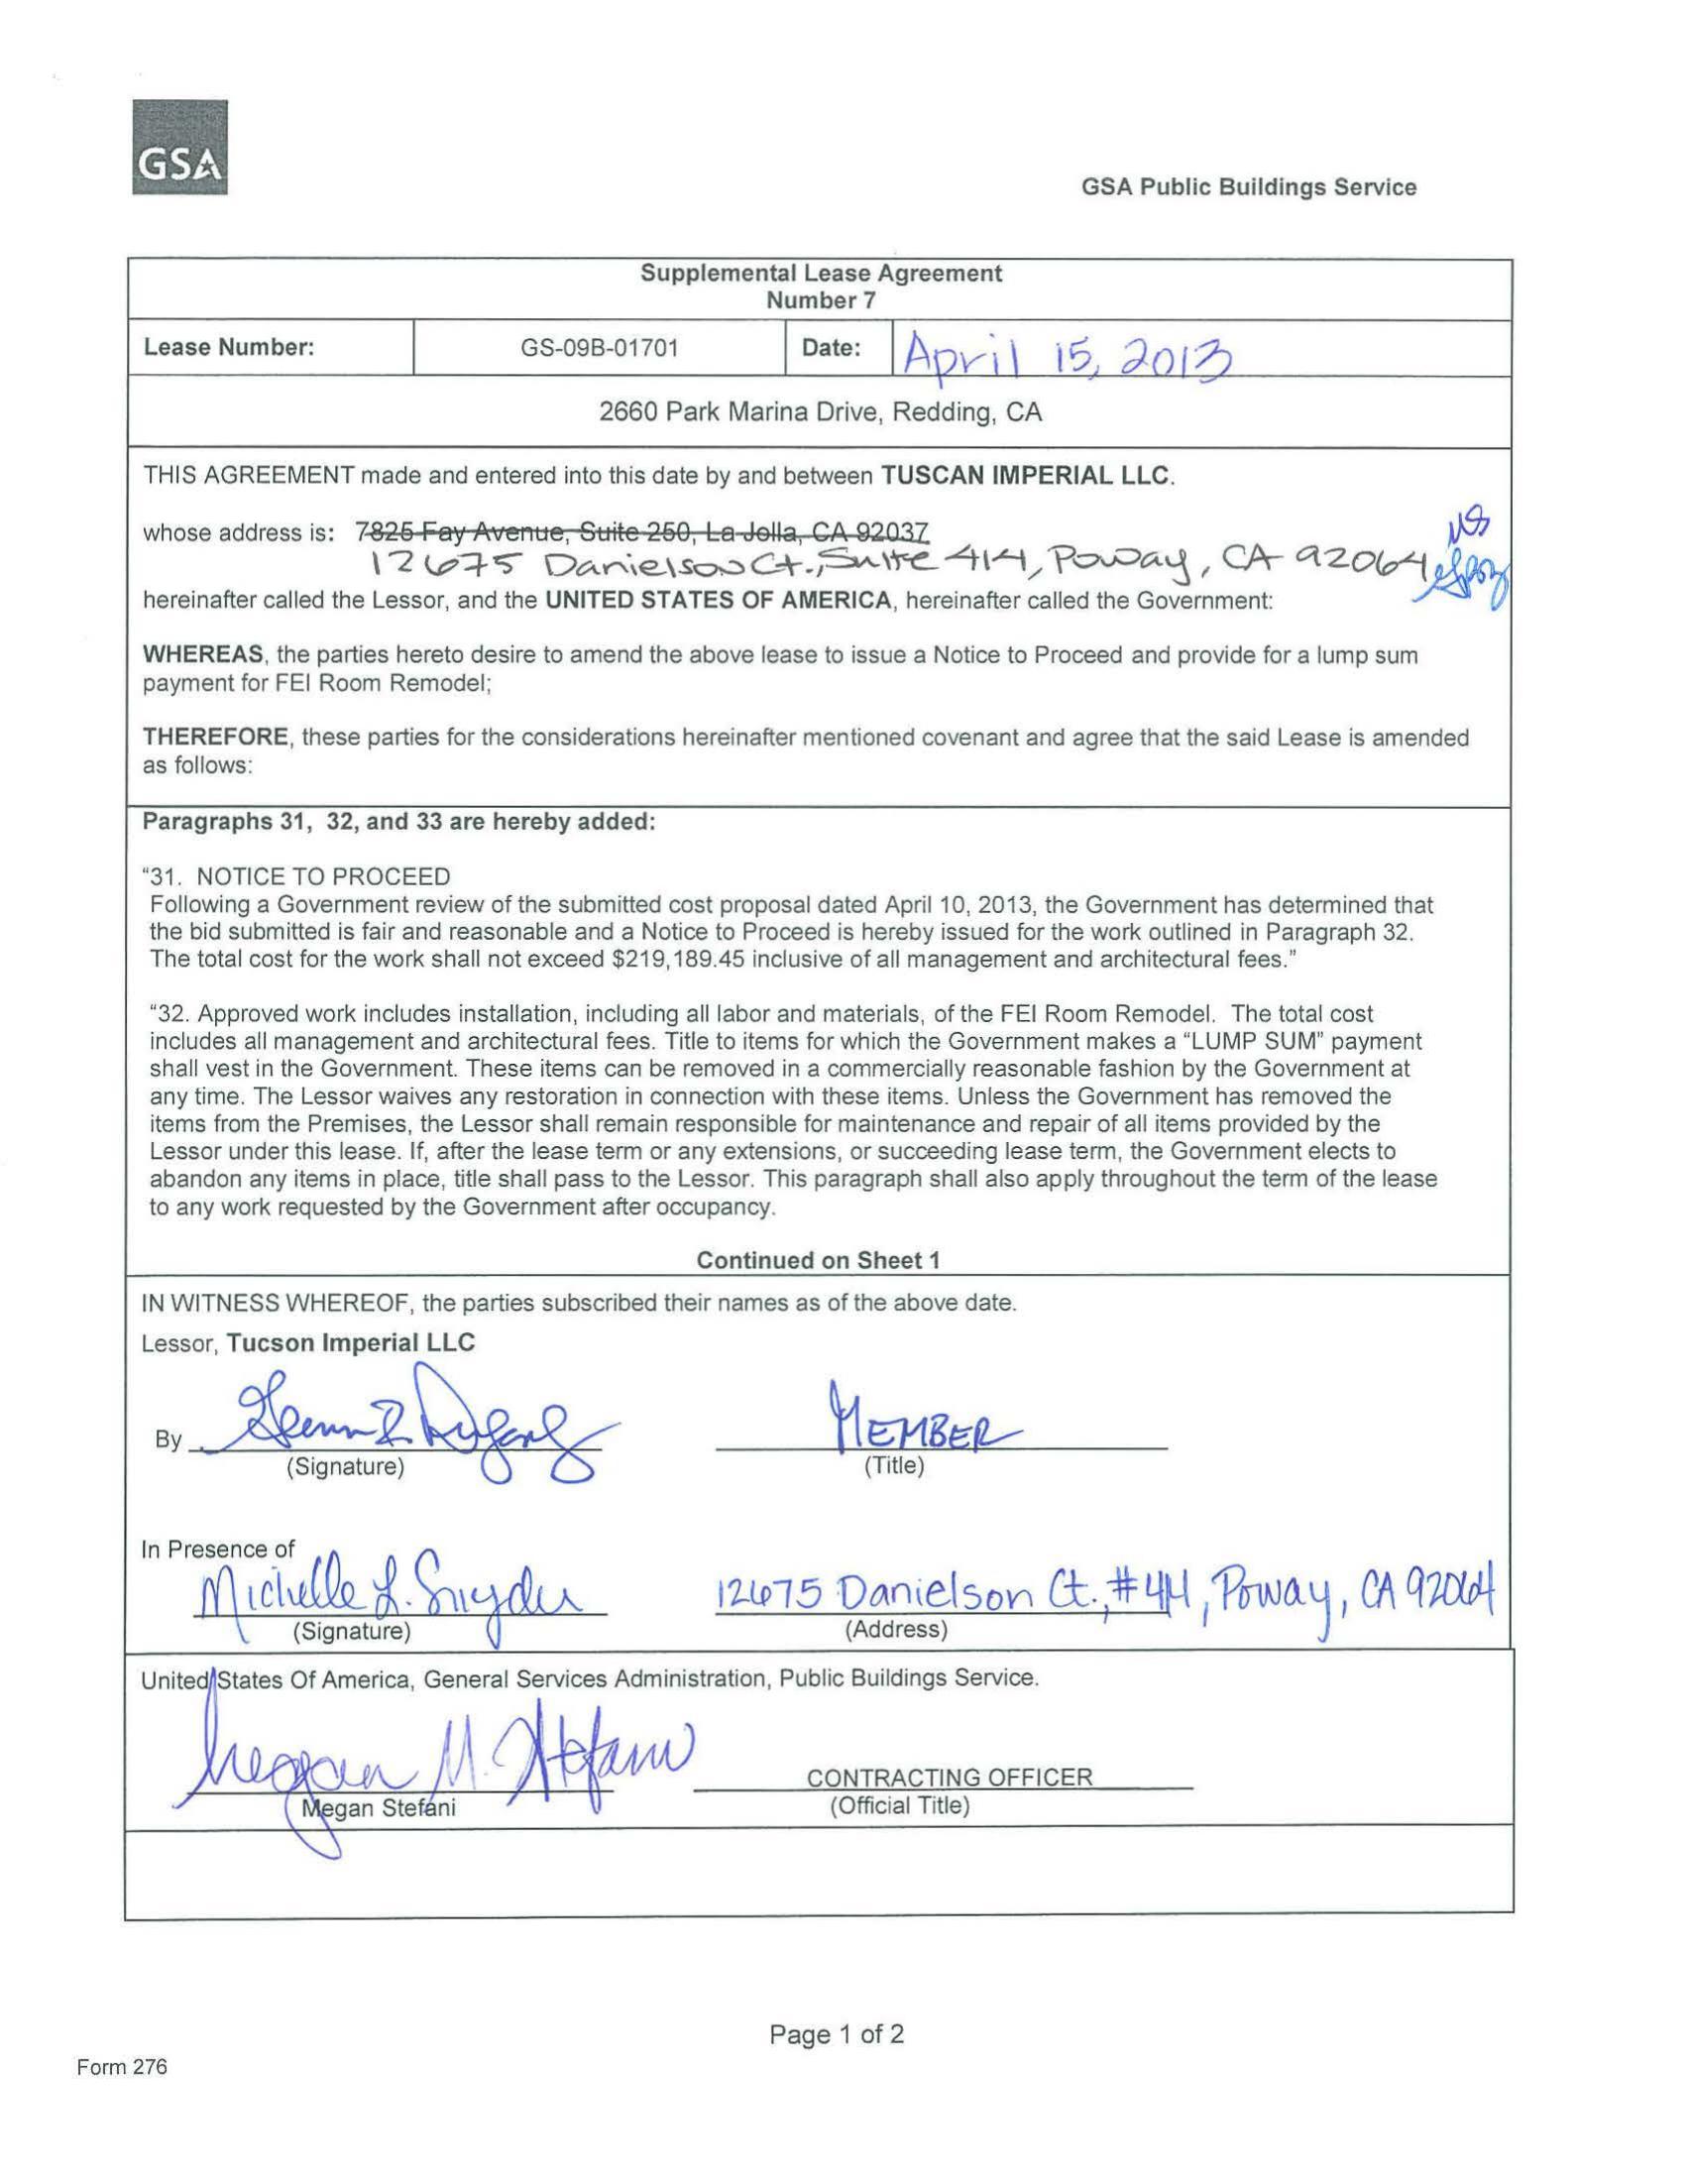 GSA
GSA Public Buildings Service
Supplemental Lease Agreement
Number 7
Lease Number:
GS-09B-01701
Date:
April 15, 2013
2660 Park Marina Drive, Redding, CA
THIS AGREEMENT made and entered into this date by and between TUSCAN IMPERIAL LLC.
whose address is: 7825 Fay Avenue, Suite 250, La Jolla, CA 92037
12675 Danielson Ct., Suite 414, Poway, CA 92064
hereinafter called the Lessor, and the UNITED STATES OF AMERICA, hereinafter called the Government:
WHEREAS, the parties hereto desire to amend the above lease to issue a Notice to Proceed and provide for a lump sum
payment for FEI Room Remodel;
THEREFORE, these parties for the considerations hereinafter mentioned covenant and agree that the said Lease is amended
as follows:
Paragraphs 31, 32, and 33 are hereby added:
“31. NOTICE TO PROCEED
Following a Government review of the submitted cost proposal dated April 10, 2013, the Government has determined that
the bid submitted is fair and reasonable and a Notice to Proceed is hereby issued for the work outlined in Paragraph 32.
The total cost for the work shall not exceed $219,189.45 inclusive of all management and architectural fees.”
“32. Approved work includes installation, including all labor and materials, of the FEI Room Remodel. The total cost
includes all management and architectural fees. Title to items for which the Government makes a “LUMP SUM” payment
shall vest in the Government. These items can be removed in a commercially reasonable fashion by the Government at
any time. The Lessor waives any restoration in connection with these items. Unless the Government has removed the
items from the Premises, the Lessor shall remain responsible for maintenance and repair of all items provided by the
Lessor under this lease. If, after the lease term or any extensions, or succeeding lease term, the Government elects to
abandon any items in place, title shall pass to the Lessor. This paragraph shall also apply throughout the term of the lease
to any work requested by the Government after occupancy.
Continued on Sheet 1
IN WITNESS WHEREOF, the parties subscribed their names as of the above date.
Lessor, Tucson Imperial LLC
By
MEMBER
(Signature)
(Title)
In Presence of
Michelle L. Snyder
12675 Danielson Ct., #414, Poway, CA 92064
(Signature)
(Address)
United States Of America, General Services Administration, Public Buildings Service.
Megan M. Stefani
CONTRACTING OFFICER
Megan Stefani
(Official Title)
Page 1 of 2
Form 276